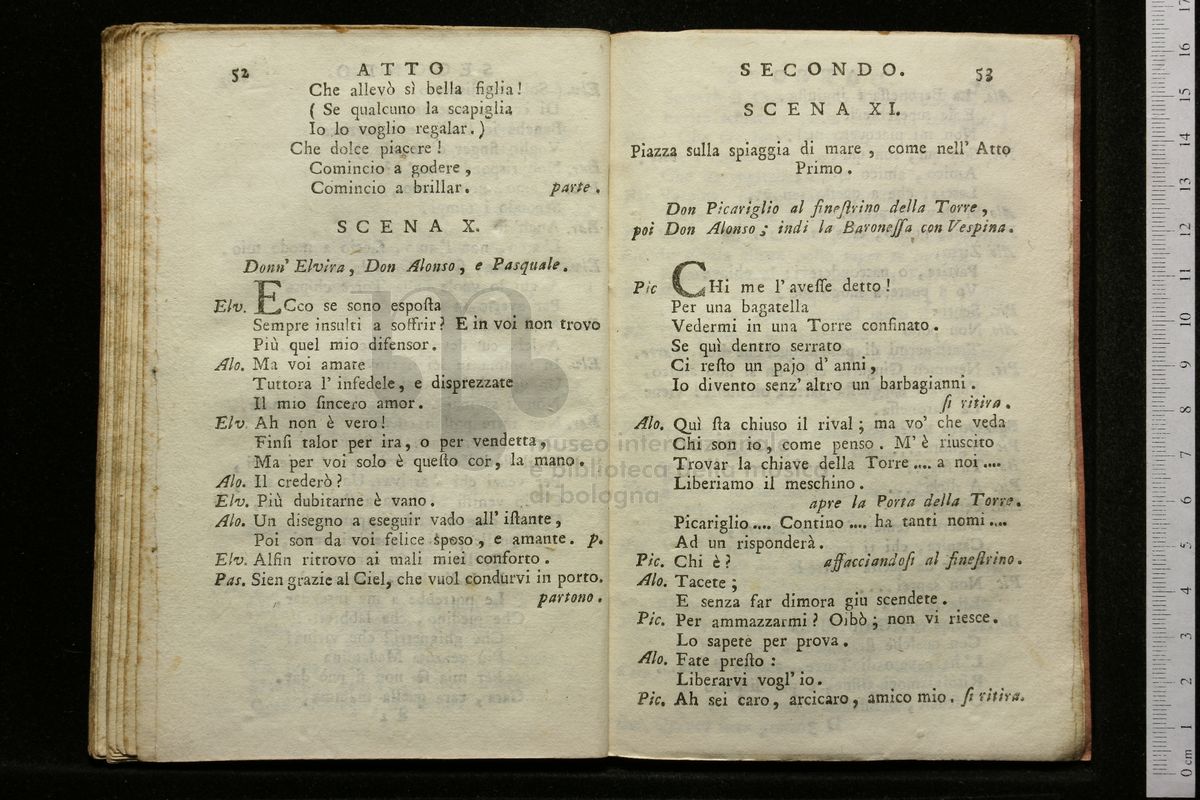 52 ATTO
Che allevò sì bella figlia!
( Se qualcuno la scapiglia
Io lo voglio regalar. )
Che dolce piacere!
Comincio a godere,
Comincio a brillar. parte.
SCENA X.
Donn' Elvira, Don Alonso, e Pasquale.
Elv. ECco se sono esposta
Sempre insulti a soffrir? E in voi non trovo
Più quel mio difensor.
Alo. Ma voi amate
Tuttora l' infedele, e disprezzate
Il mio sincero amor.
Elv. Ah non è vero!
Finsi talor per ira, o per vendetta,
Ma per voi solo è questo cor, la mano.
Alo. Il crederò?
Elv. Più dubitarne è vano.
Alo. Un disegno a eseguir vado all' istante,
Poi son da voi felice sposo, e amante. p.
Elv. Alfin ritrovo ai mali miei conforto.
Pas. Sien grazie al Ciel, che vuol condurvi in porto.
partono.
SECONDO. 53
SCENA XI.
Piazza sulla spiaggia di mare, come nell' Atto
Primo.
Don Picariglio al finestrino della Torre,
poi Don Alonso; indi la Baronessa con Vespina.
Pic CHi me l' avesse detto!
Per una bagatella
Vedermi in una Torre confinato.
Se quì dentro serrato
Ci resto un pajo d' anni,
Io divento senz' altro un barbagianni.
si ritira.
Alo. Quì sta chiuso il rival; ma vo' che veda
Chi son io, come penso. M' è riuscito
Trovar la chiave della Torre.... a noi....
Liberiamo il meschino.
apre la Porta della Torre.
Picariglio.... Contino.... ha tanti nomi....
Ad un risponderà.
Pic. Chi è? affacciandosi al finestrino.
Alo. Tacete;
E senza far dimora giù scendete.
Pic. Per ammazzarmi? Oibò; non vi riesce.
Lo sapete per prova.
Alo. Fate presto:
Liberarvi vogl' io.
Pic. Ah sei caro, arcicaro, amico mio. si ritira.
museo internazionale
e biblioteca della musica
di bologna
17
16
15
14
13
12
11
10
9
8
7
6
5
4
3
2
1
0 cm